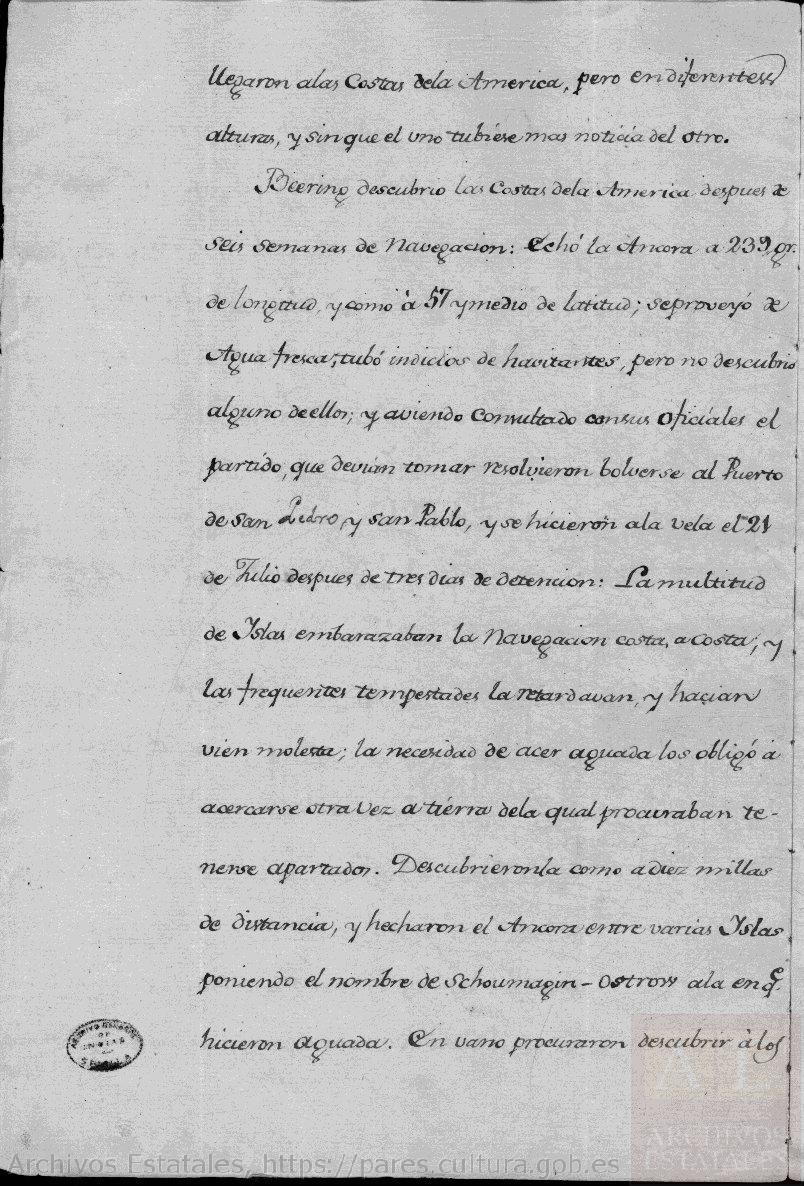 llegaron alas Costas dela America, pero en diferentes
alturas, y sin que el uno tubiese mas noticia del otro.
Beering descubrio las Costas dela America despues de
seis semanas de Navegacion: Echó la Ancora a 239 gr.
de longitud, y como à 57 y medio de latitud; se proveyó de
Agua fresca; tubó indicios de havitantes, pero no descubrió
alguno de ellos; y aviendo Consultado con sus oficiales el
partido, que devian tomar resolvieron bolverse al Puerto
de San Pedro, y san Pablo, y se hicieron ala vela el 21
de Julio despues de tres dias de detencion: La multitud
de Islas embarazaban la Navegacion costa, a costa; y
las frequentes tempestades la retardavan, y hacian
vien molesta; la necesidad de acer aguada los obligó à
acercarse otra Vez a tierra dela qual procuraban te-
nerse apartados. Descubrieronla como a diez millas
de distancia, y hecharon el Ancora entre varias Islas
poniendo el nombre de Schoumagin-Ostrow ala en q.e
hicieron aguada. En vano procuraron descubrir à los
ARCHIVO GENERAL
DE
INDIAS
SEVILLA
AE
ARCHIVOS
ESTATALES
Archivos Estatales, https://pares.cultura.gob.es